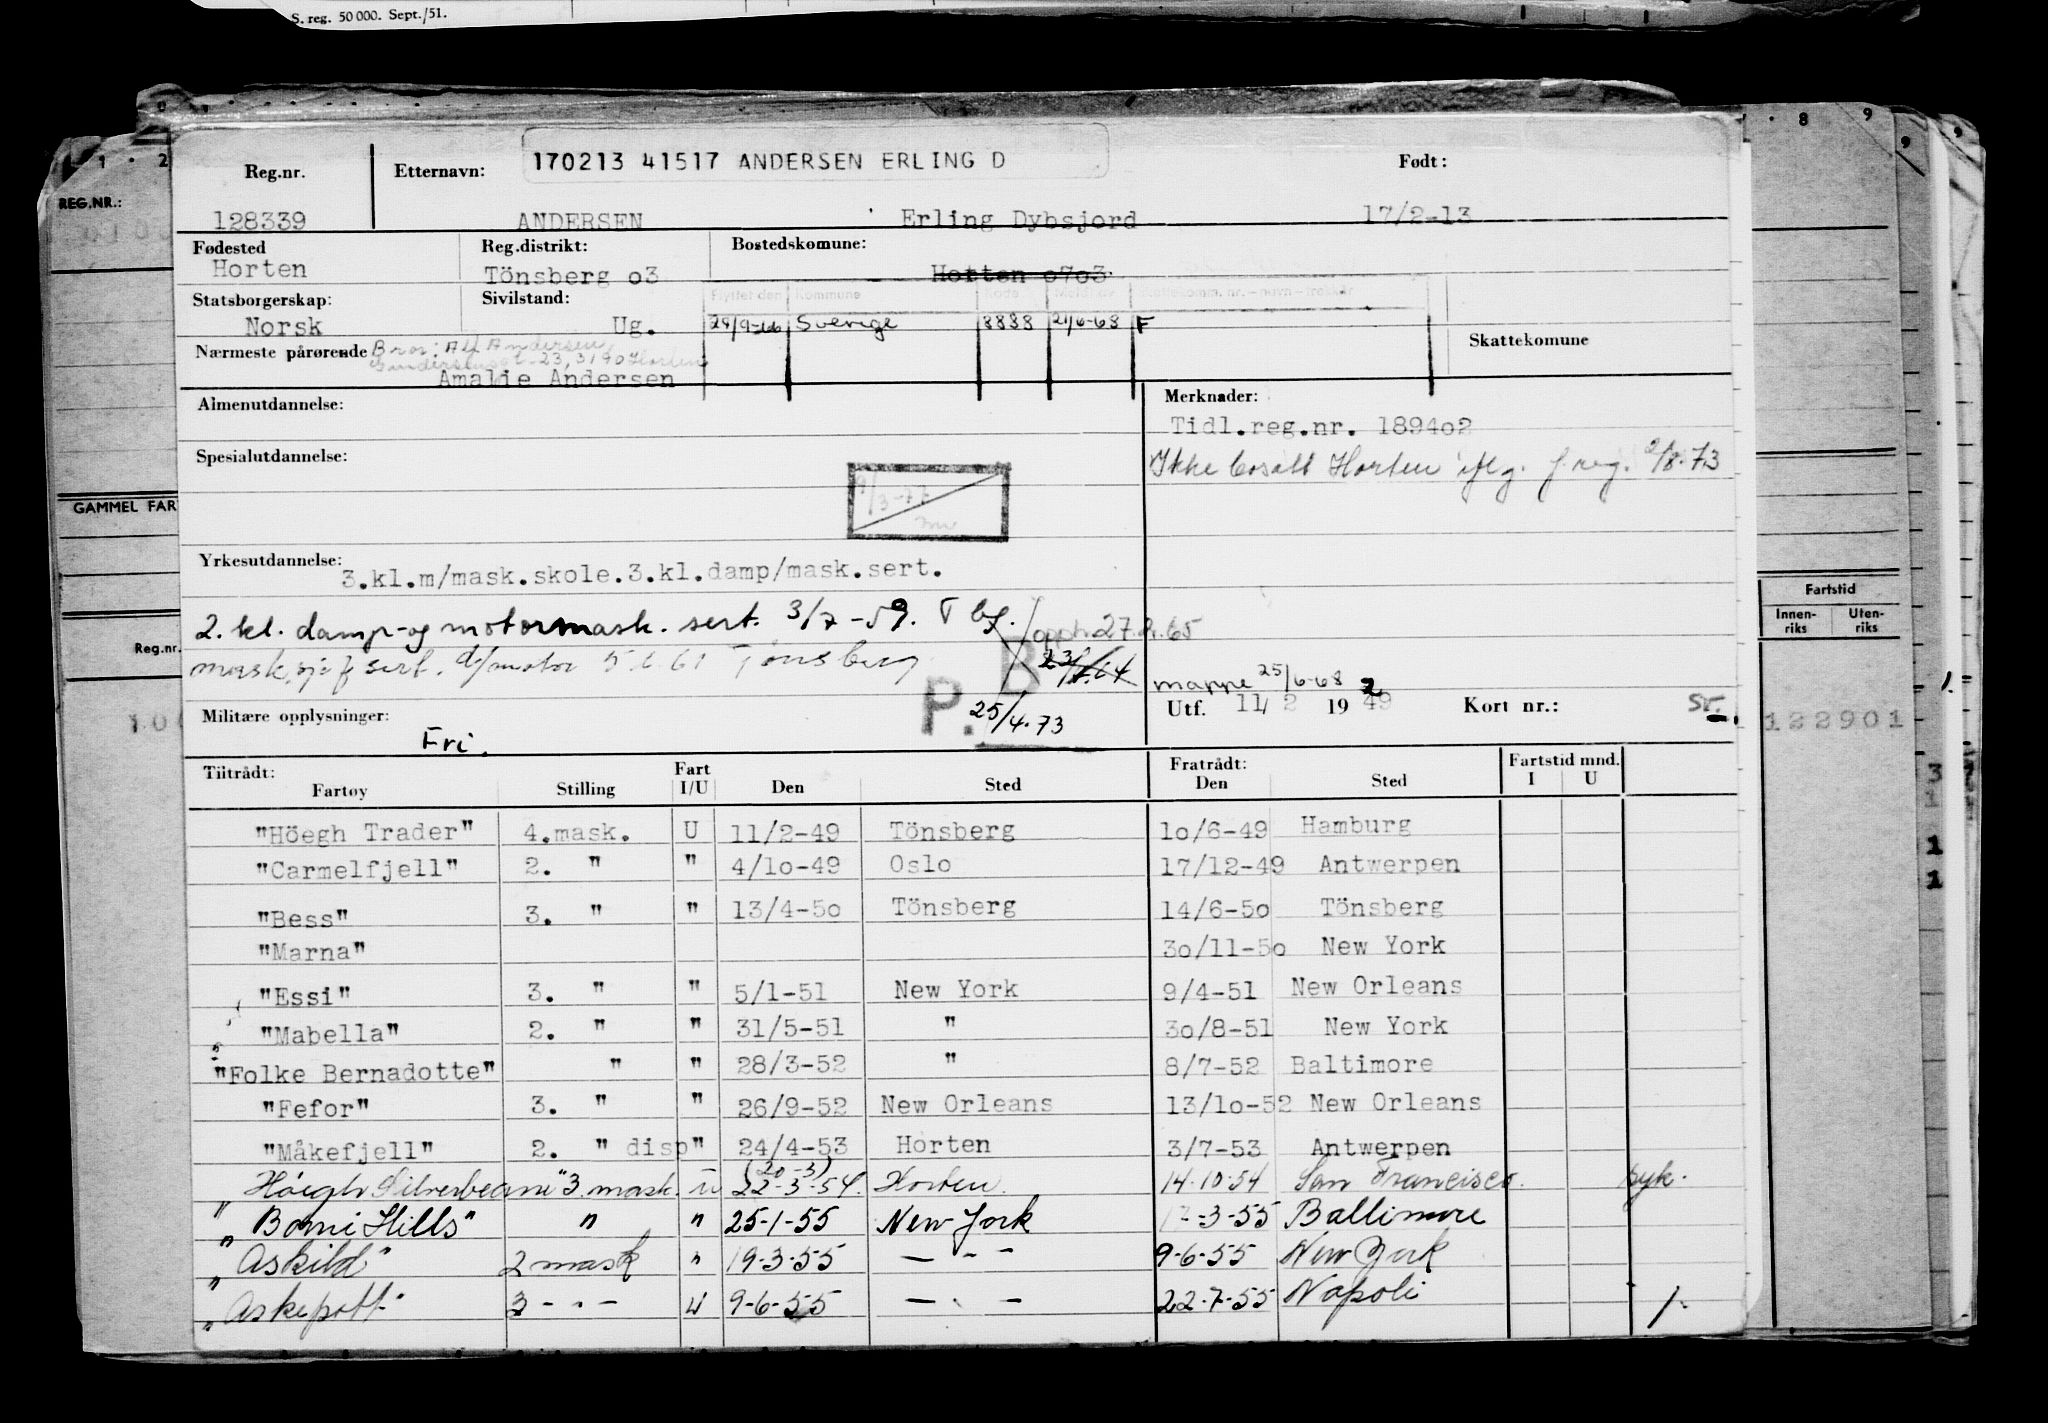 S. reg. 50 000. Sept./51.
1 · 2
8 9
9
9
REG.NR.:
GAMMEL FAR
Reg.nr.
Fartstid
Innen-riks Uten-riks
122901
Reg.nr. Etternavn: 170213 41517 ANDERSEN ERLING D Født:
128339 ANDERSEN Erling Dybsjord 17/2-13
Fødested Reg.distrikt: Bostedskomune:
Horten Tönsberg o3 Horten o7o3
Statsborgerskap: Sivilstand: Flyttet den Kommune Kode Meldt av Skattekomm. nr. – navn – trekkår
Norsk Ug. 29/9-66 Sverige 8888 21/6-68 F
Nærmeste pårørende Bror: Alf Andersen, Skattekomune
23, 3190 Horten
Amalie Andersen
Almenutdannelse: Merknader:
Tidl.reg.nr. 1894o2
Spesialutdannelse: Ikke bosatt Horten iflg. f.reg. 2/8.73
9/3-77
Yrkesutdannelse:
3.kl.m/mask.skole.3.kl.damp/mask.sert.
2. kl. damp- og motormask. sert. 3/7-59. T bg. opph. 27.2.65
mask.sjef sert. d/motor 5.6.61 Tönsberg B
mappe 25/6-68 2
P. 25/4.73
Utf. 11/2 19 49 Kort nr.: Sr.
Militære opplysninger:
Fri.
Tiltrådt: Fart Fratrådt: Fartstid mnd.
Fartøy Stilling I/U Den Sted Den Sted I U
"Höegh Trader" 4.mask. U 11/2-49 Tönsberg 1o/6-49 Hamburg
"Carmelfjell" 2. " " 4/1o-49 Oslo 17/12-49 Antwerpen
"Bess" 3. " " 13/4-5o Tönsberg 14/6-5o Tönsberg
"Marna" 3o/11-5o New York
"Essi" 3. " " 5/1-51 New York 9/4-51 New Orleans
"Mabella" 2. " " 31/5-51 " 3o/8-51 New York
"Folke Bernadotte" " " 28/3-52 " 8/7-52 Baltimore
"Fefor" 3. " " 26/9-52 New Orleans 13/1o-52 New Orleans
"Måkefjell" 2. " disp" 24/4-53 Horten 3/7-53 Antwerpen
(20-3)
"Höegh Silverbeam" 3. mask. u 22-3-54. Horten 14.10.54 San Francisco. syk.
"Bomi Hills" " " 25-1-55 New York 17-3-55 Baltimore
"Askild" 2 mask " 19-3-55 – " – 9-6-55 New York
"Askepott" 2 - " - U 9-6-55 – " – 22-7-55 Napoli 1.